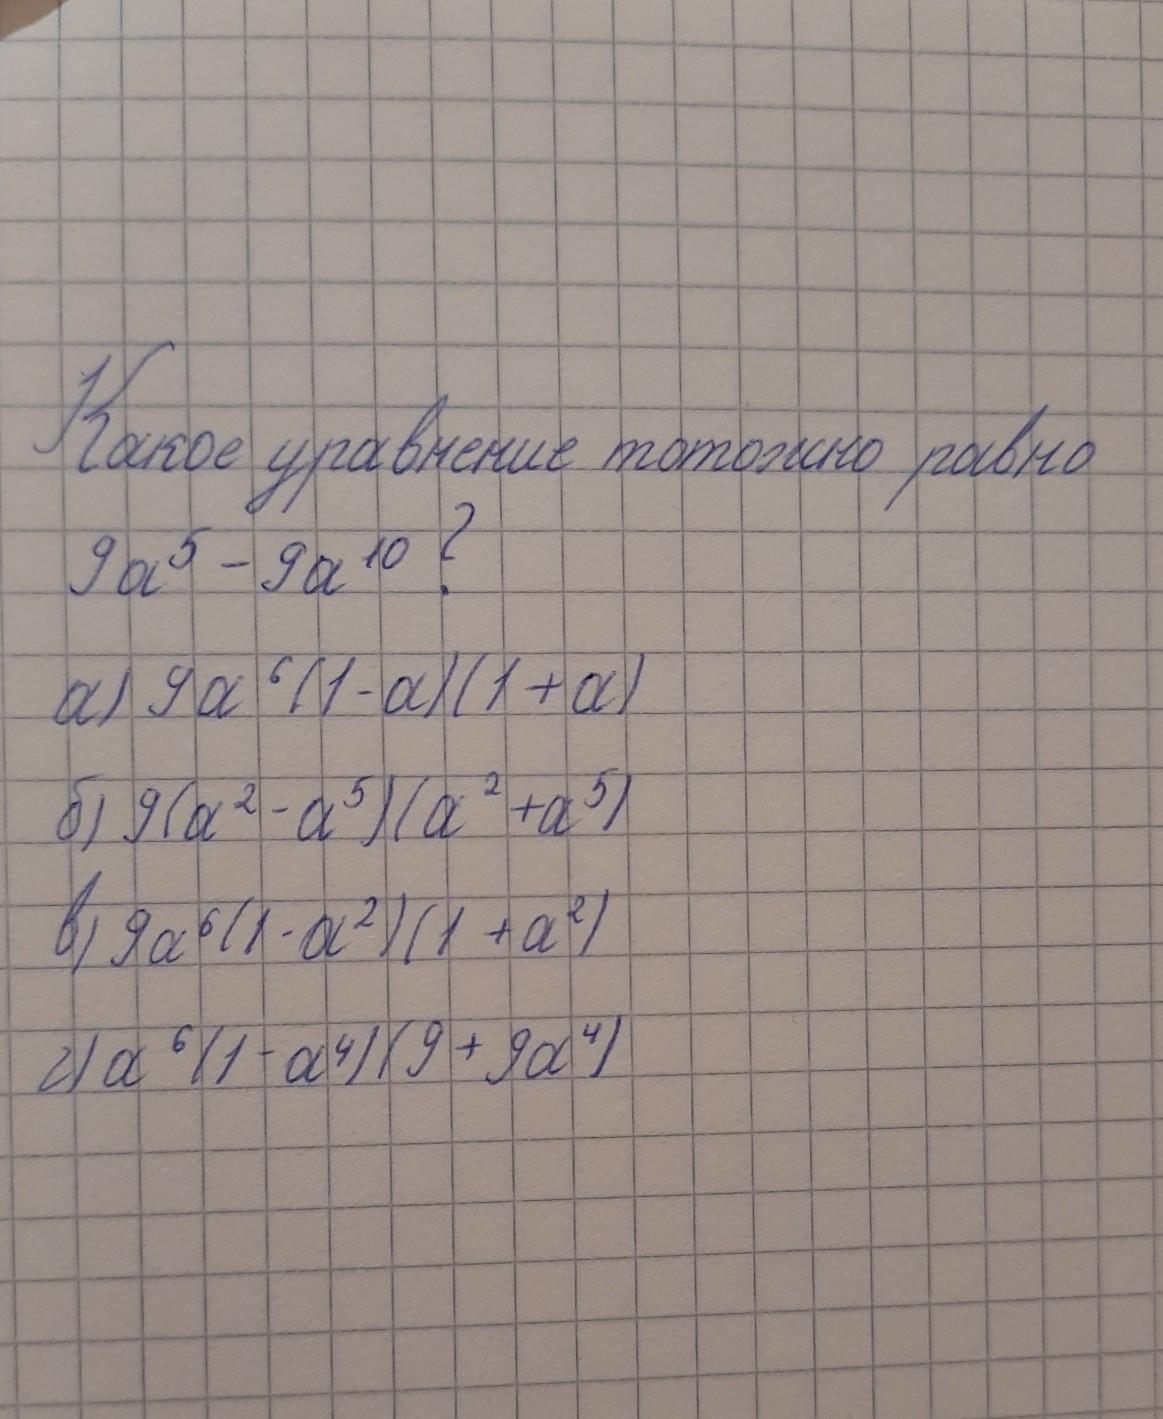 Какое уравнение тотожно равно
9a⁵ - 9a¹⁰ ?
а) 9a⁶(1-a)(1+a)
б) 9(a²-a⁵)(a²+a⁵)
в) 9a⁶(1-a²)(1+a²)
г) a⁶(1-a⁴)(9+9a⁴)